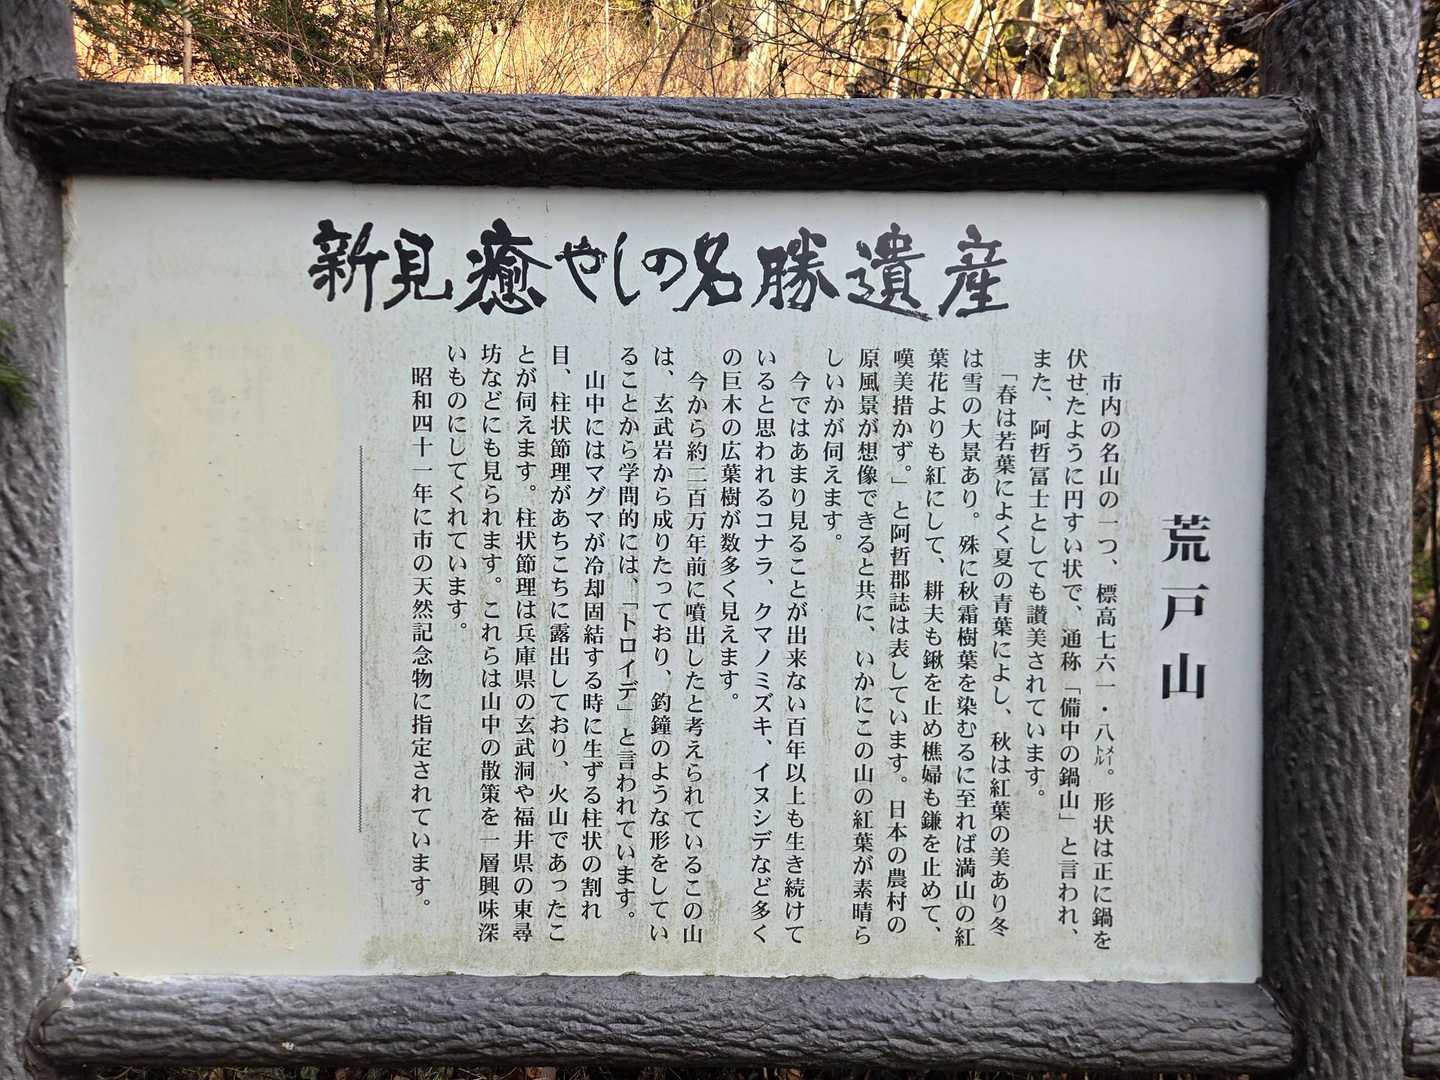 新見癒やしの名勝遺産
荒戸山
市内の名山の一つ、標高七六一・八㍍。形状は正に鍋を
伏せたように円すい状で、通称「備中の鍋山」と言われ、
また、阿哲冨士としても讃美されています。
「春は若葉によく夏の青葉によし、秋は紅葉の美あり冬
は雪の大景あり。殊に秋霜樹葉を染むるに至れば満山の紅
葉花よりも紅にして、耕夫も鍬を止め樵婦も鎌を止めて、
嘆美措かず。」と阿哲郡誌は表しています。日本の農村の
原風景が想像できると共に、いかにこの山の紅葉が素晴ら
しいかが伺えます。
今ではあまり見ることが出来ない百年以上も生き続けて
いると思われるコナラ、クマノミズキ、イヌシデなど多く
の巨木の広葉樹が数多く見えます。
今から約二百万年前に噴出したと考えられているこの山
は、玄武岩から成りたっており、釣鐘のような形をしてい
ることから学問的には、「トロイデ」と言われています。
山中にはマグマが冷却固結する時に生ずる柱状の割れ
目、柱状節理があちこちに露出しており、火山であったこ
とが伺えます。柱状節理は兵庫県の玄武洞や福井県の東尋
坊などにも見られます。これらは山中の散策を一層興味深
いものにしてくれています。
昭和四十一年に市の天然記念物に指定されています。